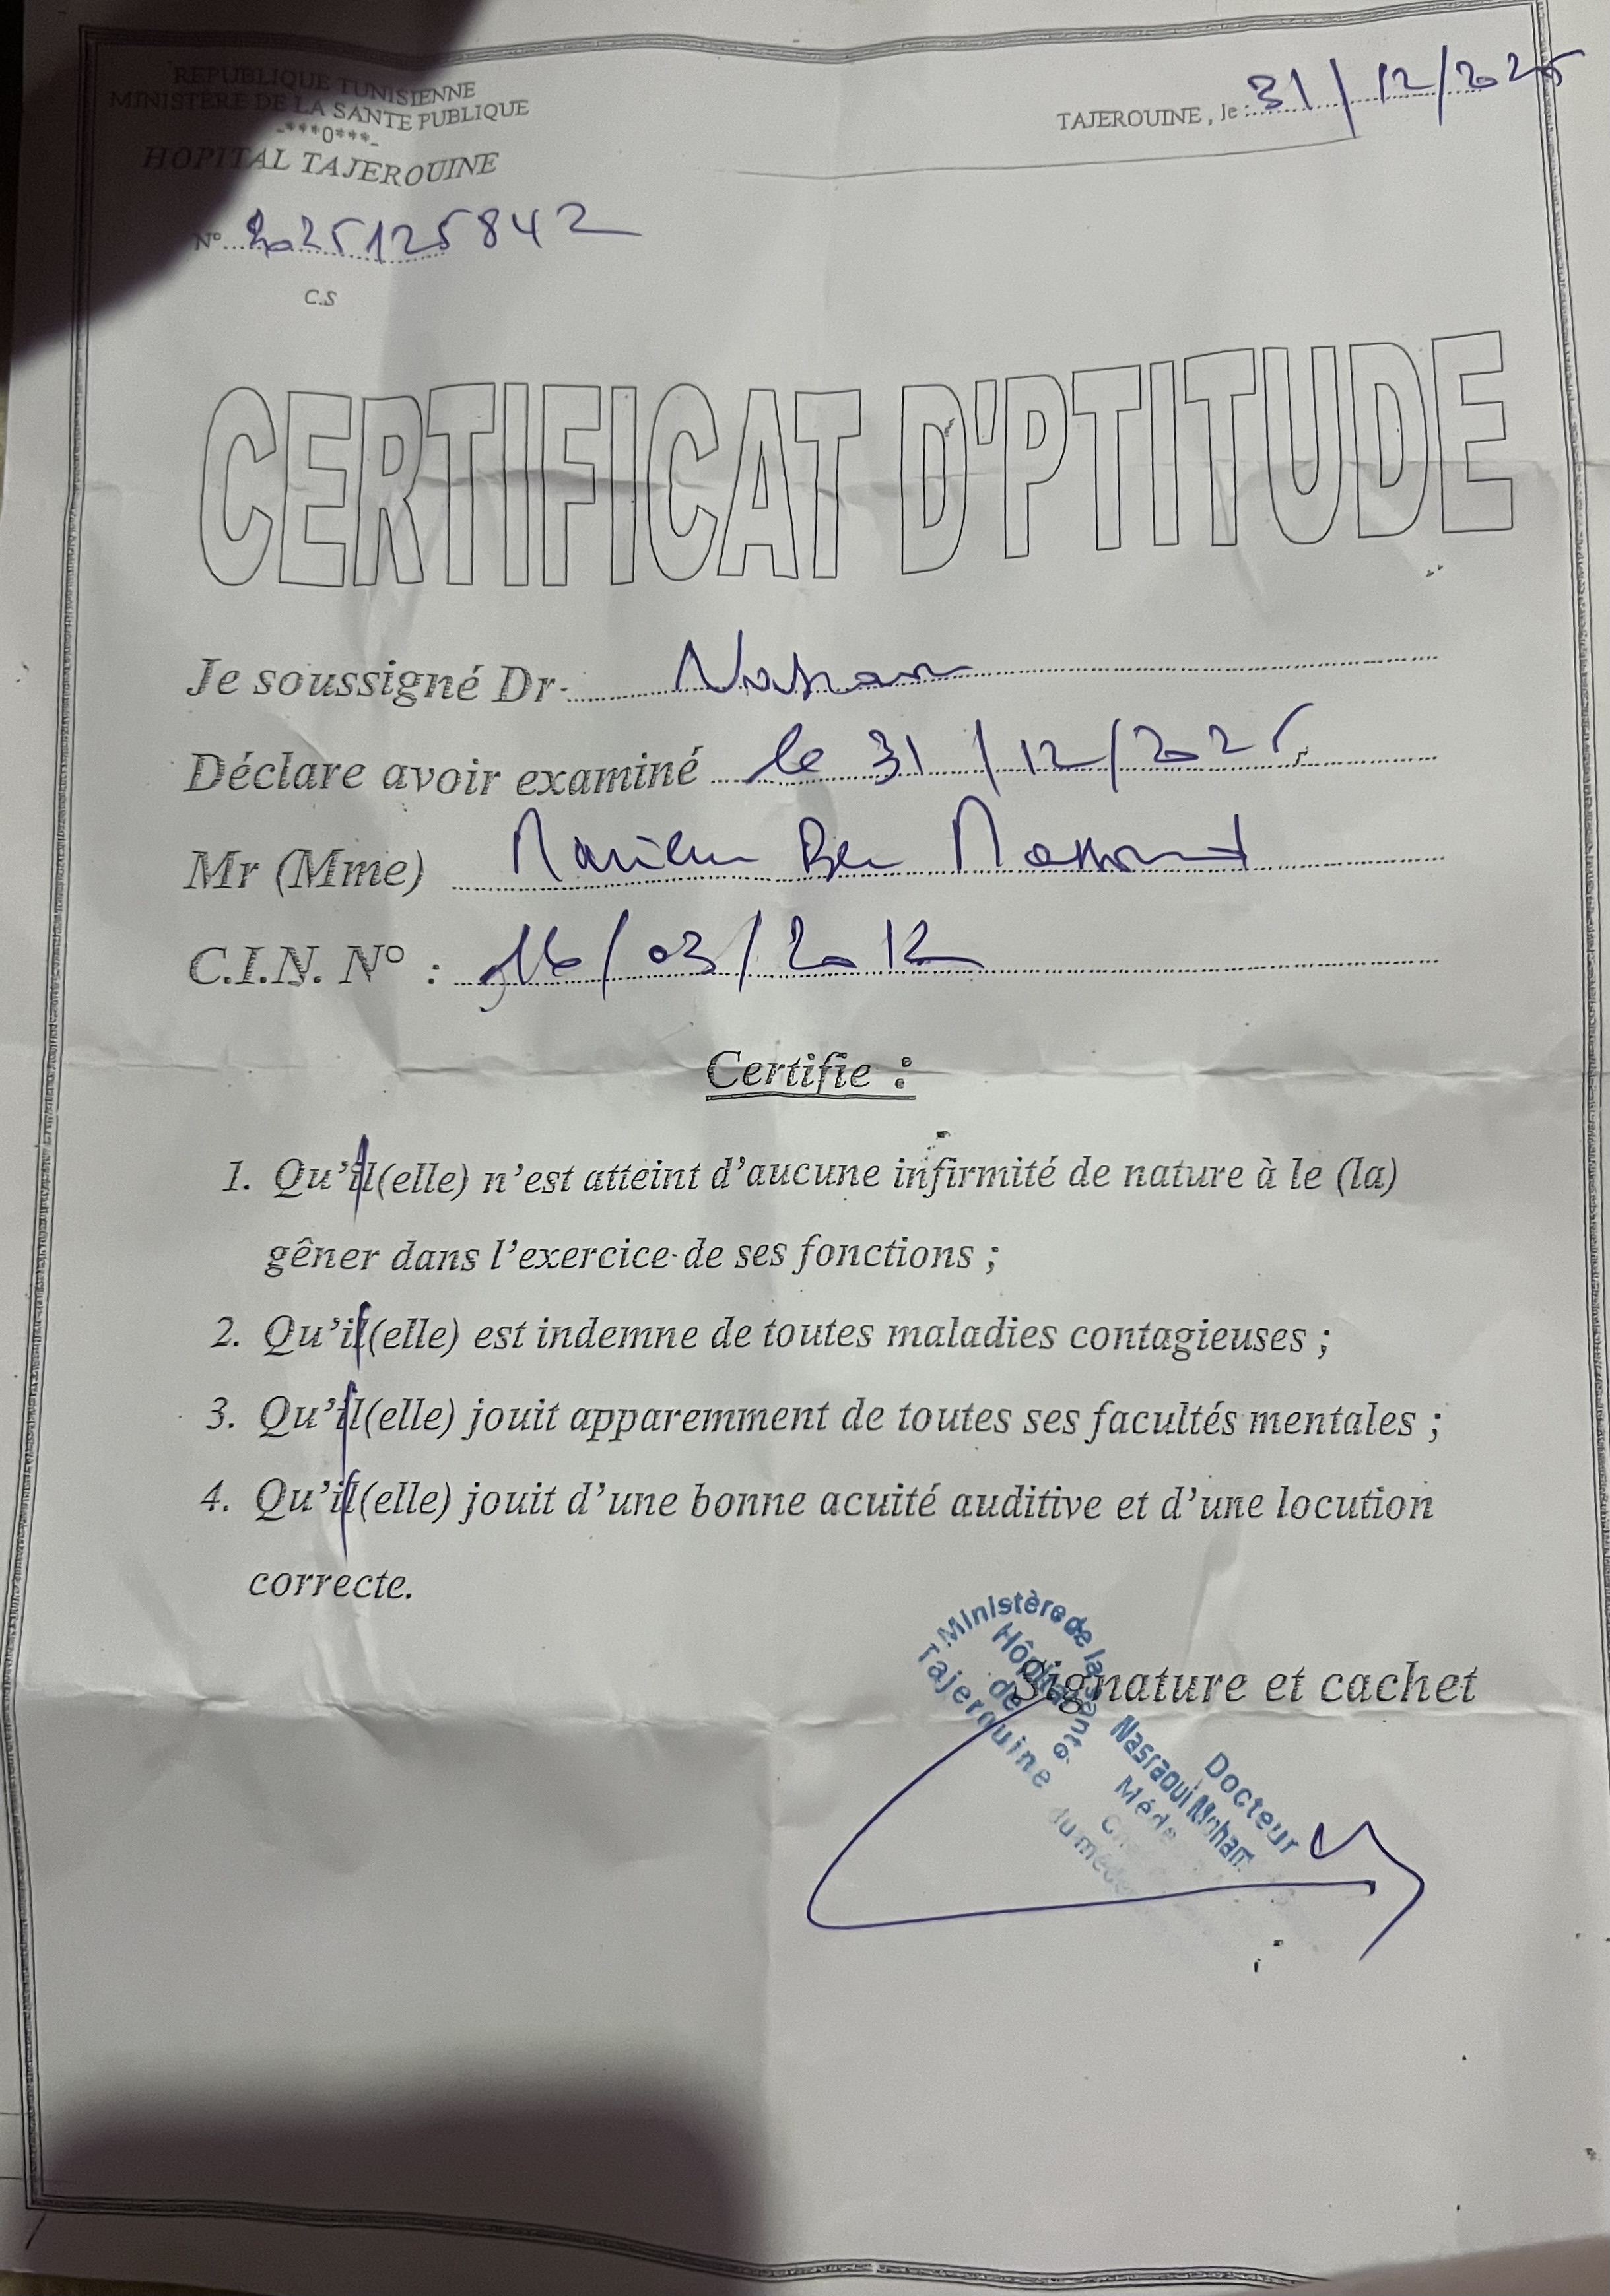 REPUBLIQUE TUNISIENNE
MINISTERE DE LA SANTE PUBLIQUE
-***0***-
HOPITAL TAJEROUINE
TAJEROUINE, le : 31/12/2025
N° 2025125842
C.S
CERTIFICAT D'PTITUDE
Je soussigné Dr
Déclare avoir examiné le 31/12/2025
Mr (Mme) Ben
C.I.N. N° : 16/03/2012
Certifie :
1. Qu'il(elle) n'est atteint d'aucune infirmité de nature à le (la)
gêner dans l'exercice de ses fonctions ;
2. Qu'il(elle) est indemne de toutes maladies contagieuses ;
3. Qu'il(elle) jouit apparemment de toutes ses facultés mentales ;
4. Qu'il(elle) jouit d'une bonne acuité auditive et d'une locution
correcte.
Signature et cachet
Ministère de la santé
Hôpital
de
Tajerouine
Docteur
Nasraoui